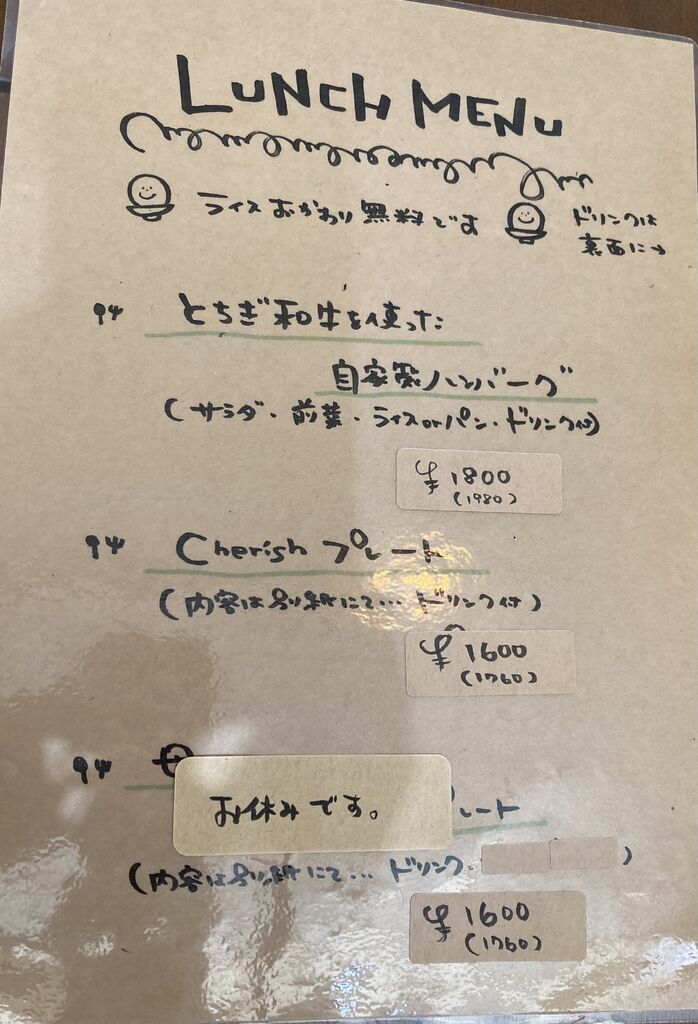 LUNCH MENU
ライスおかわり無料です
ドリンクは
裏面に→
とちぎ和牛を使った
自家製ハンバーグ
(サラダ・前菜・ライスorパン・ドリンク付)
¥1800
(1980)
Cherish プレート
(内容は別紙にて... ドリンク付)
¥1600
(1760)
お休みです。
レート
(内容は別紙にて... ドリンク・)
¥1600
(1760)